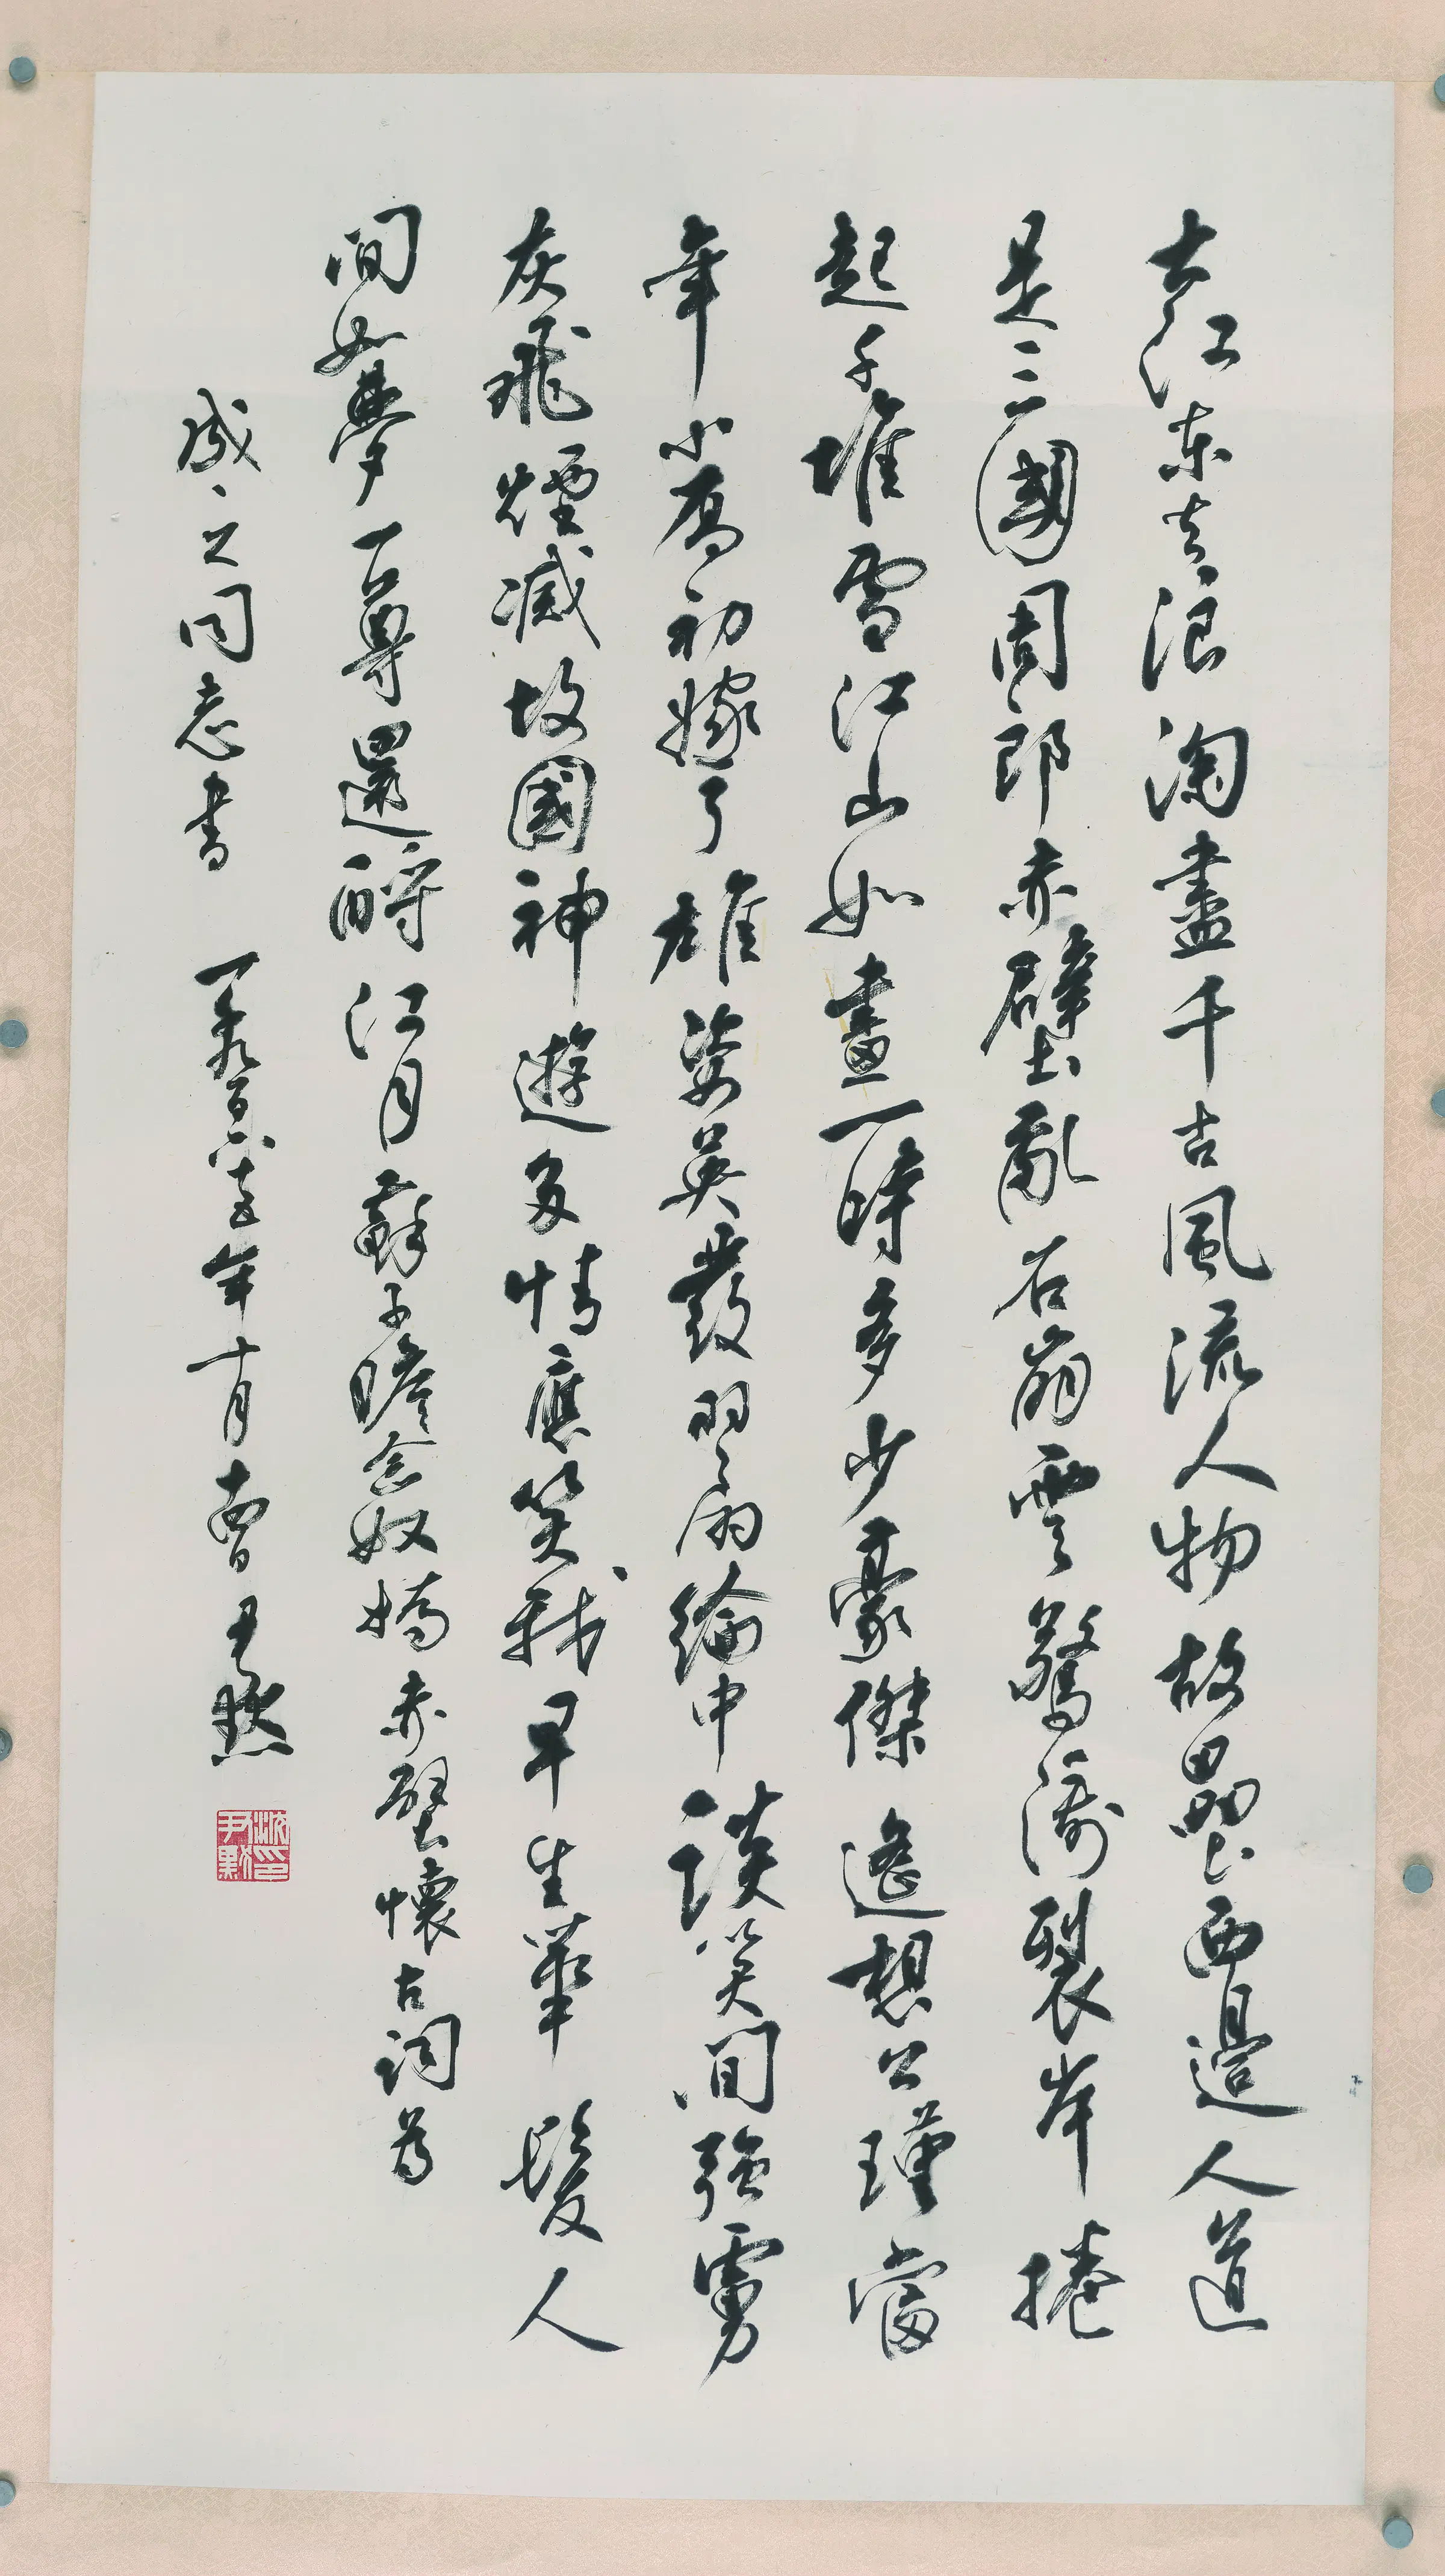 大江東去浪淘盡千古風流人物故壘西邊人道
是三國周郎赤壁亂石崩雲驚濤裂岸捲
起千堆雪江山如畫一時多少豪傑遙想公瑾當
年小喬初嫁了雄姿英發羽扇綸巾談笑間強虜
灰飛煙滅故國神遊多情應笑我早生華髮人
間如夢一尊還酹江月蘇子瞻念奴嬌赤壁懷古詞為
之同志書 一千九百六十五年十月 尹默
沈印尹默